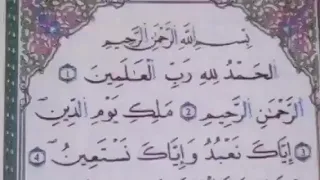 بِسْمِ اللَّهِ الرَّحْمَٰنِ الرَّحِيمِ
الْحَمْدُ لِلَّهِ رَبِّ الْعَالَمِينَ ١
الرَّحْمَٰنِ الرَّحِيمِ ٢ مَلِكِ يَوْمِ الدِّينِ
٣ إِيَّاكَ نَعْبُدُ وَإِيَّاكَ نَسْتَعِينُ ٤